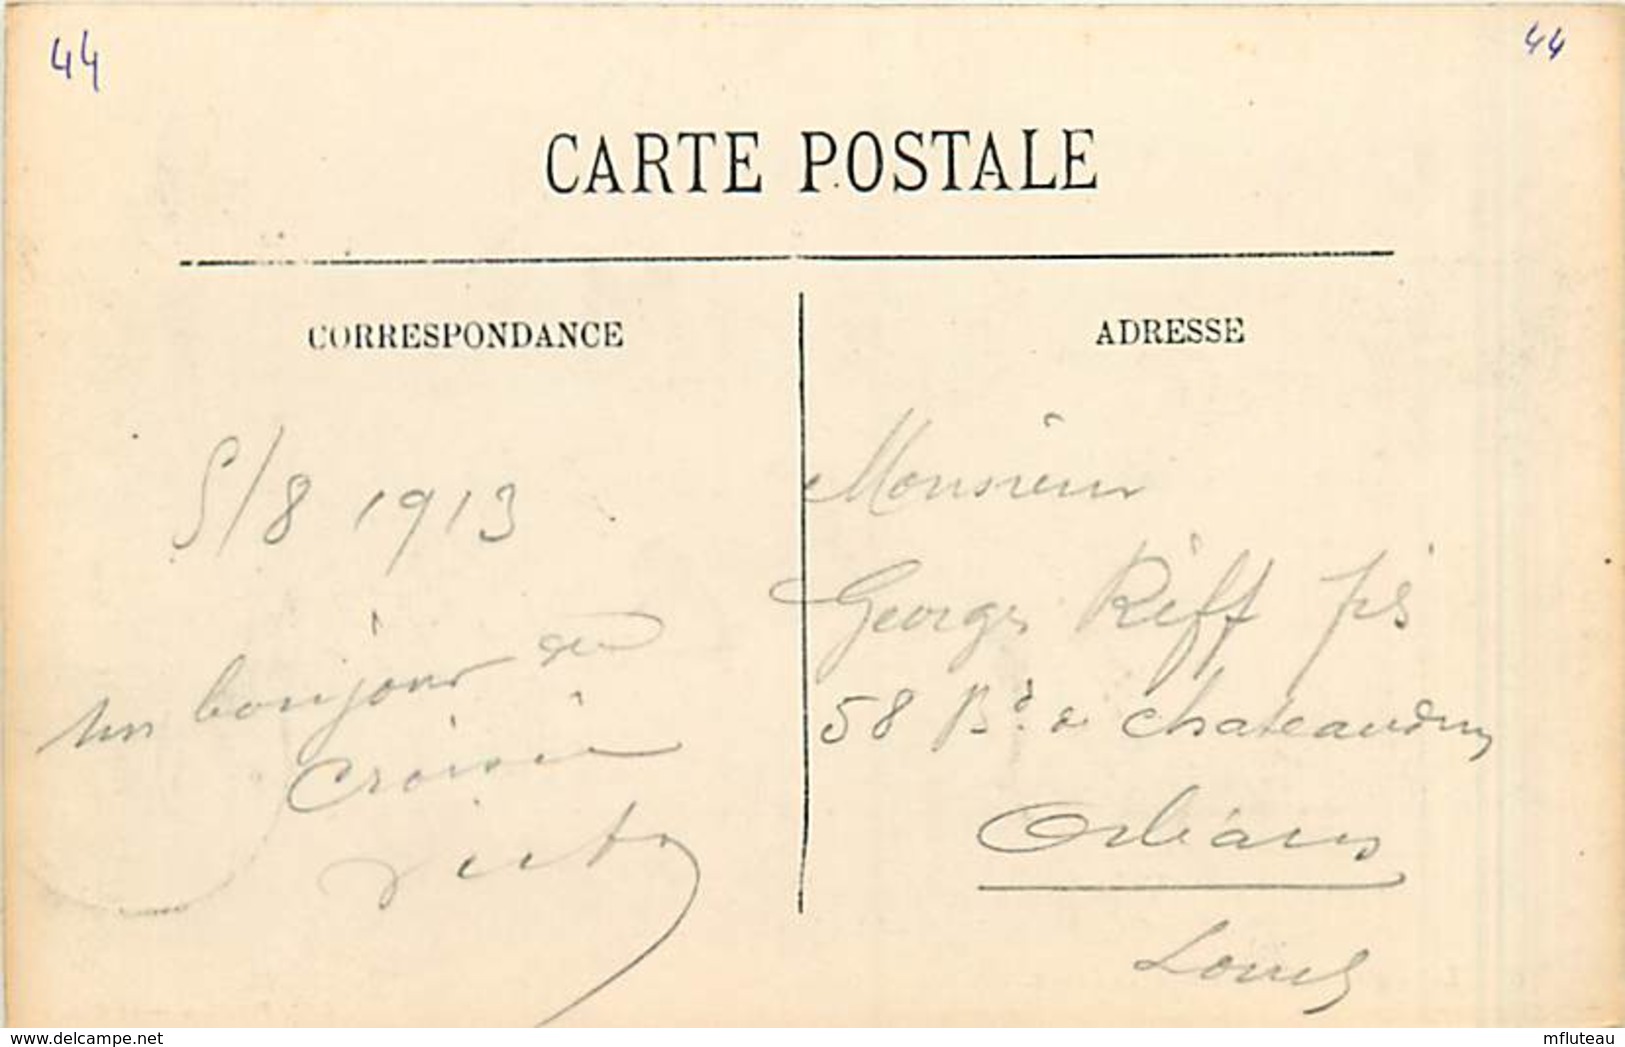 44
44
CARTE POSTALE
CORRESPONDANCE
ADRESSE
5/8 1913
un bonjour du
Croisic
Monsieur
Georges Riff fils
58 Bd de Chateaudun
Orléans
Loiret
delcampe.net
mfluteau